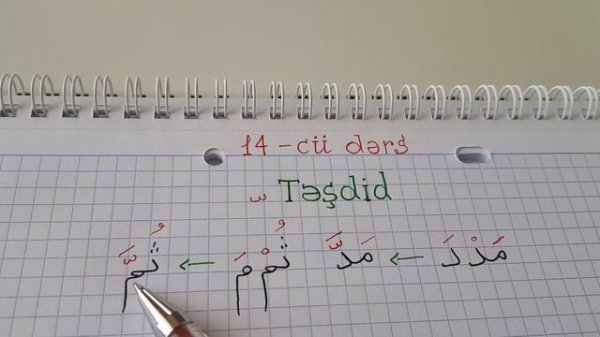 14-cü dərs
ّ Təşdid
مَدْدَ ← مَدَّ ثُمْمَ ← ثُمَّ